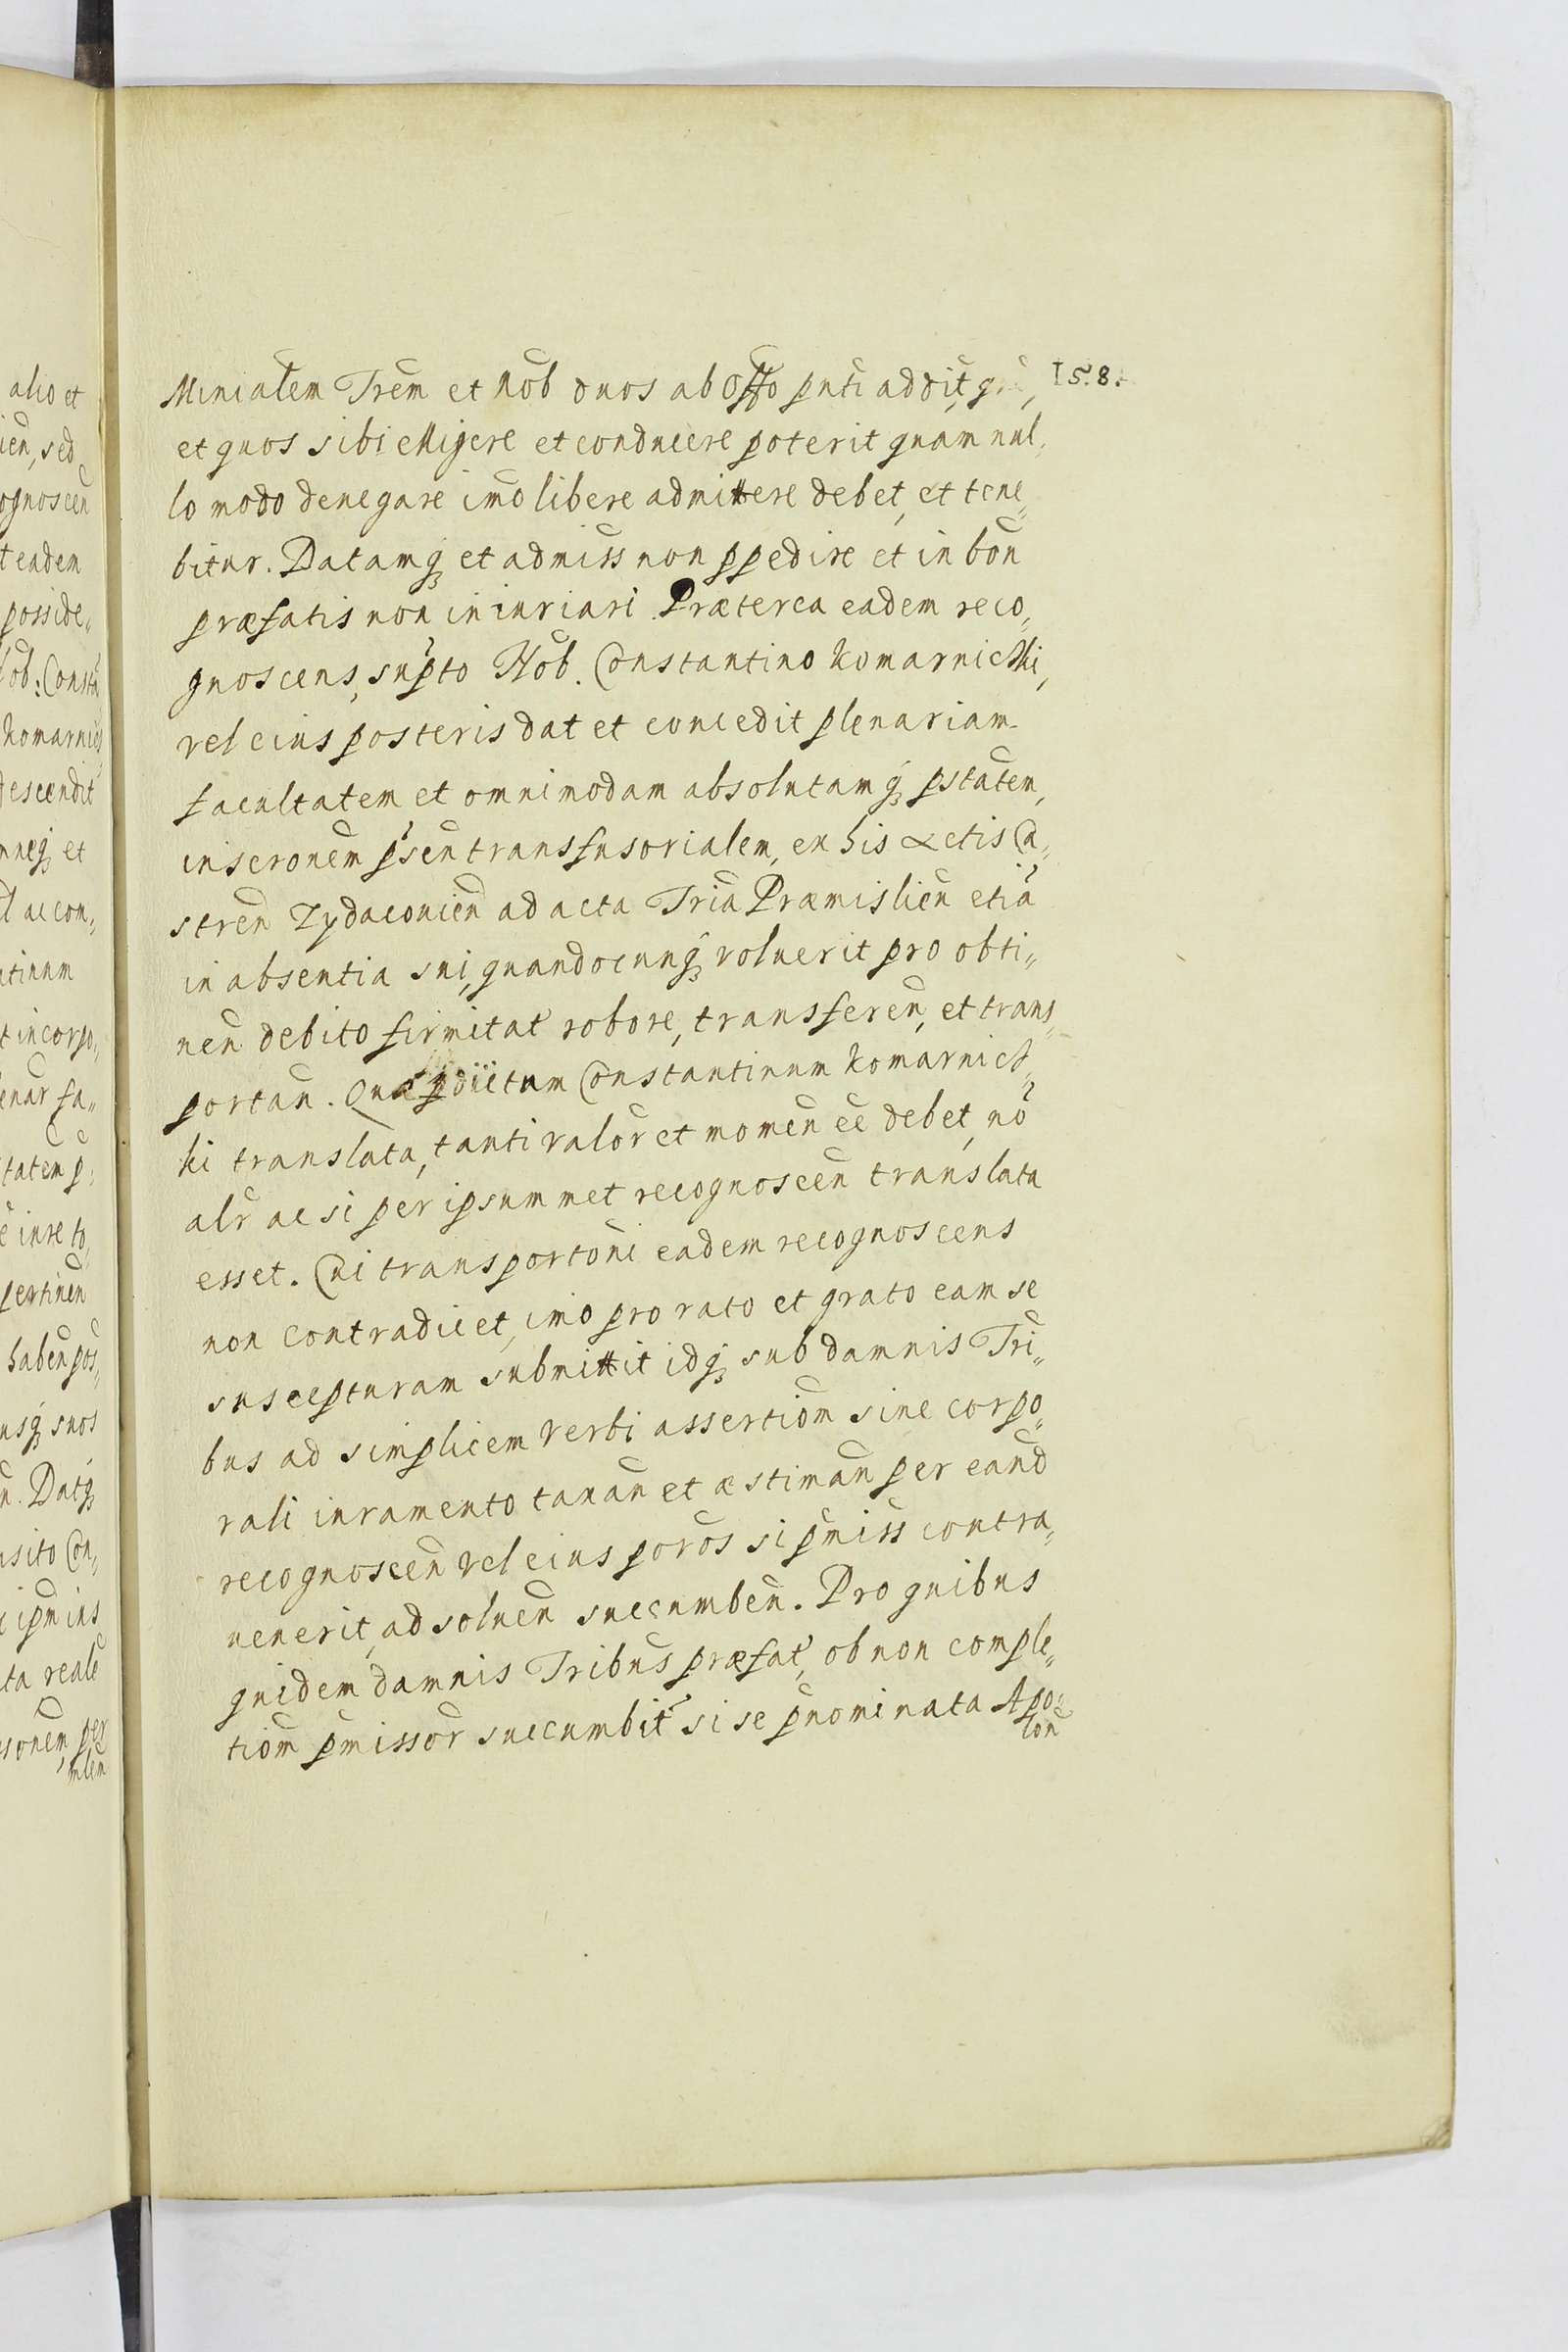 Minialem Trem et Nob duos ab Offo pnti addit,
et quos sibi elligere et conducere poterit quam nul,
lo modo denegare imo libere admittere debet, et tene„
bitur. Datamq et admiss non ppedire et in bon
præfatis non ininriari Præterea eadem reco„
gnoscens, supto Nob. Constantino Komarnicki,
vel eius posteris dat et concedit plenariam
facultatem et omnimodam absolutamq pstatem,
inscronem psen transfusorialem, ex his actis Ca„
stren Zydaconien ad acta Tria Præmislien etia
in absentia sui, quandocunq voluerit pro obti„
nen debito firmitat robore, transferen, et trans„
portan. Quæ p dictum Constantinum Komarnic„
ki translata, tanti valor et momen ee debet, no
alr ac si per ipsummet recognoscen translata
esset. Cui transportoni eadem recognoscens
non contradicet, imo pro rato et grato eam se
suscepturam submittit idq sub damnis Tri„
bus ad simplicem verbi assertiom sine corpo„
rali iuramento taxan et æstiman per eand
recognoscen vel eius poros si pmiss contra„
uenerit, ad soluen succumben. Pro quibus
quidem damnis Tribus præfat, ob non comple„
tiom pmissor succumbit si se pnominata Apo„
lon
158.
alio et
ien, sed
ognoscen
t eadem
posside„
Nob: Consta
Komarnic
descendit
mneq et
l ac con„
ntinum
t incorpo„
enar fa„
tatem p„
e iure to
pertinen
haben pos„
usq suos
n. Datq
usito Con„
ipm ius
ta reale
sonem, per
mlem